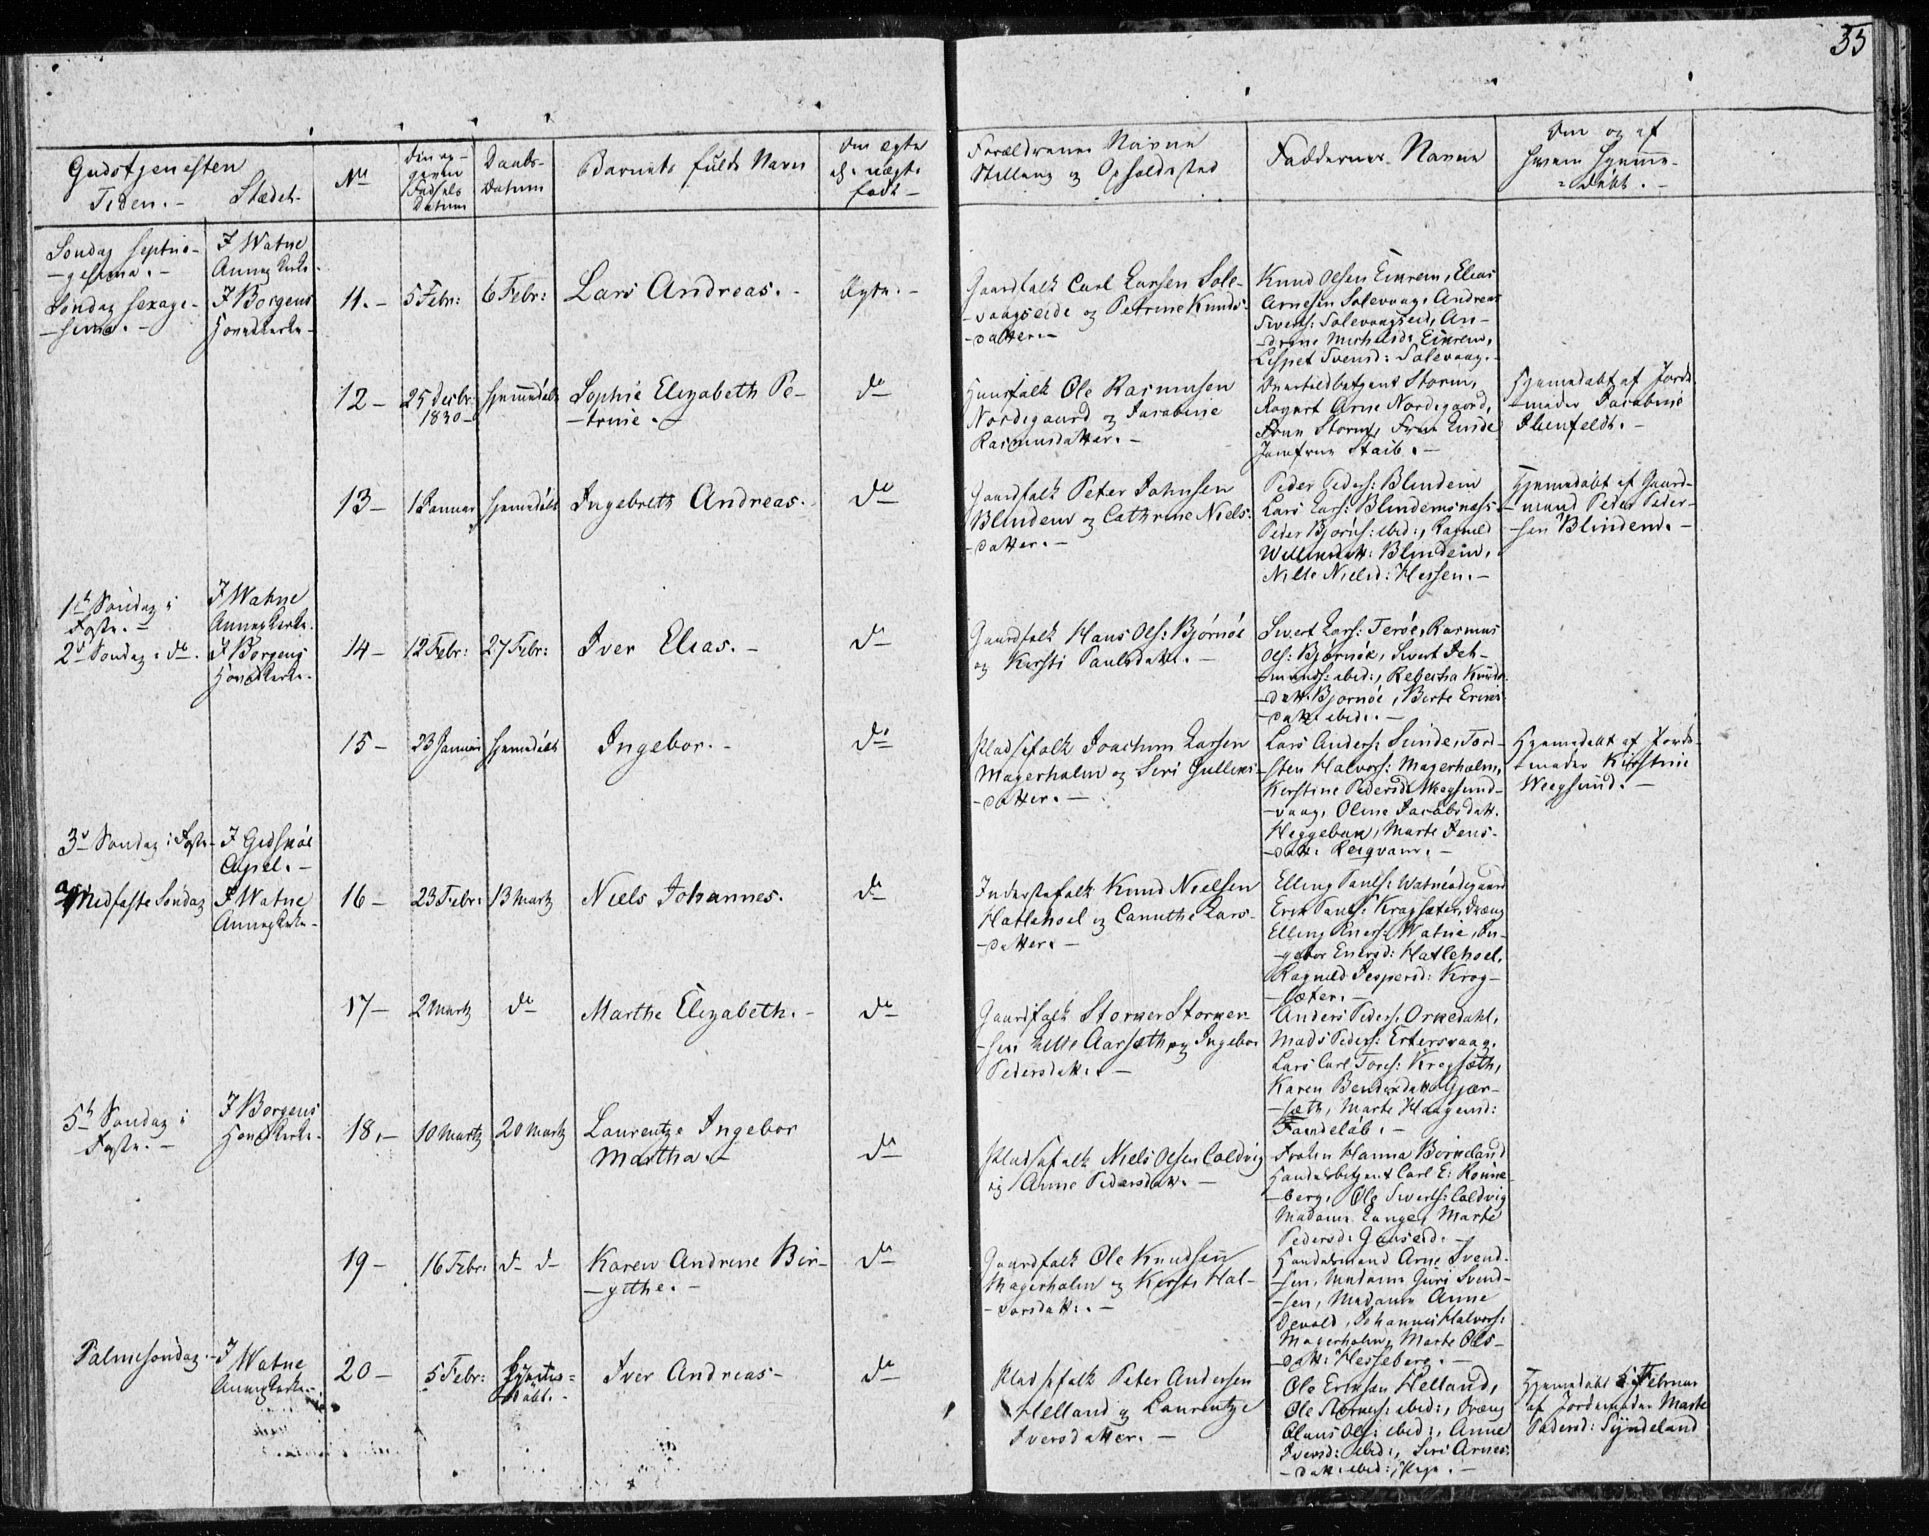 35
Gudstjenesten
Tiden. - Stædet
No
Den op-
given
Fødsels
Datum
Daabs-
Datum
Barnets fulde Navn
Om ægte
el. uægte
født -
Forældrenes Navne
Stilling og Opholdsted
Faddernes Navne
Om og af
hvem hjemme-
-døbt. -
Søndag Septua-
-gesima. -
I Watne
Annex Kirke.
Søndag Sexage-
-sima. -
I Borgens
Hoved Kirke -
11. - 5 Febr: 6 Febr: Lars Andreas. - Ægte. -
Gaardfolk Carl Larsen Sole-
-vaagseide og Petrine Knuds-
-datter. -
Knud Olsen Einrem, Elias
Arnesen Solevaag, Andreas
Siverts: Solevaagseid, An-
-drine Michelsd: Einrem,
Lispet Svensd: Solevaag. -
12 - 25 Decbr: 1830 - hjemmedøbt Sophie Elizabeth Pe-
-trine. - do
Huusfolk Ole Rasmusen
Nordegaard og Jacobine
Rasmusdatter. -
Storm,
Arne Nordegaard,
Frue Storm, Frue
Jomfrue Staib. -
Hjemmedøbt af Jorde-
-moder Jacobine
Ibenfeldt. -
13 - 1 Januar hjemmedøbt Ingebreth Andreas. do
Gaardfolk Peter Johnsen
Blindem og Cathrine Niels-
-datter. -
Peder Peders: Blindem
Lars Lars: Blindemsnæss.
Peder Bjørns: ibid:, Ragnild
Willumsdatt: Blindem,
Nille Nielsd: Hessen. -
Hjemmedøbt af Gaard-
-mand Peder Peder-
-sen Blindem. -
1ste Søndag i
Faste. -
I Watne
Annex Kirke.
2den Søndag i do.
I Borgens
Hoved Kirke.
14 - 12 Febr: 27 Febr: Iver Elias. - do
Gaardfolk Hans Ols: Bjørnøe
og Kirsti Paulsdatt. -
Sivert Lars: Terøe, Rasmus
Ols: Bjørnøe, Sivert Jet-
-munds: ibid:, Rebecka Knuds-
-datt: Bjørnøe, Berte Erics-
-datt: ibid:. -
15 - 23 Januar hjemmedøbt Ingebor. - do
Pladsefolk Joachim Larsen
Magerholm og Siri Gullens-
-datter. -
Lars Anders: Sunde, Tor-
-sten Halvors: Magerholm,
Kirstine Pedersd: Weegsund-
-vaag, Oline Jacobsdatt:
Heggebak, Marte Jens-
-datt: -
Hjemmedøbt af Jorde-
-moder Kirstine
Weegsund. -
3die Søndag i Faste
I Gidskøe
Capel. -
Midfaste Søndag
I Watne
Annex Kirke -
16 - 23 Febr: 13 Martz Niels Johannes. do
Inderstefolk Knud Nielsen
Hatlehoel og Canuthe Lars-
-datter. -
Elling Pauls: Watneødegaard
Erik Pauls: Krogsæter, Dreng
Elling Watne, In-
-gebor Enersd: Hatlehoel,
Ragnild Jespersd: Krog-
-sæter. -
17 - 2 Martz do Marthe Elizabeth. - do
Gaardfolk Storker Storker-
-sen Aarsæth og Ingebor
Pedersdatt. -
Anders Peders: Orkedahl,
Mads Peders: Ertersvaag,
Lars Carl Tores: Krogsæth,
Karen Bendixdatt: Gjær-
-sæth, Marte Haagensd:
Tandeløb. -
5te Søndag i
Faste. -
I Borgens
Hoved Kirke -
18, - 10 Martz 20 Martz Laurentze Ingebor
Martha. - do
Pladsefolk Niels Olsen Caldvig
og Anne Pedersdatt. -
Frøken Hanna Borkeland
Handelsbetjent Carl E: Rønne-
-berg, Ole Siverts: Caldvig
Madame Lange, Marte
Pedersd: Gaaseid. -
19 - 16 Febr: do do Karen Andrine Bir-
-gitthe. - do
Gaardfolk Ole Knudsen
Magerholm og Kirsti Hal-
-vorsdatt: -
Handelsmand Arne Svend-
-sen, Madame Guri Svend-
-sen, Madame Anne
Devold, Johannes Halvors:
Magerholm, Marte Ols-
-datt: Hesseberg. -
Palmesøndag. -
I Watne
Annex Kirke -
20 - 5 Febr: Hjemme-
-døbt. - Iver Andreas - do
Pladsefolk Peter Andersen
Helland og Laurentze
Iversdatter. -
Ole Ericksen Helland,
Ole Storkers: ibid:, Dreng
Claus Ols: ibid:, Anne
Iversd: ibid:, Siri Arnes-
-datt: ibid:, Pige. -
Hjemmedøbt 5 Februar
af Jordemoder Marte
Pedersd: Syndeland